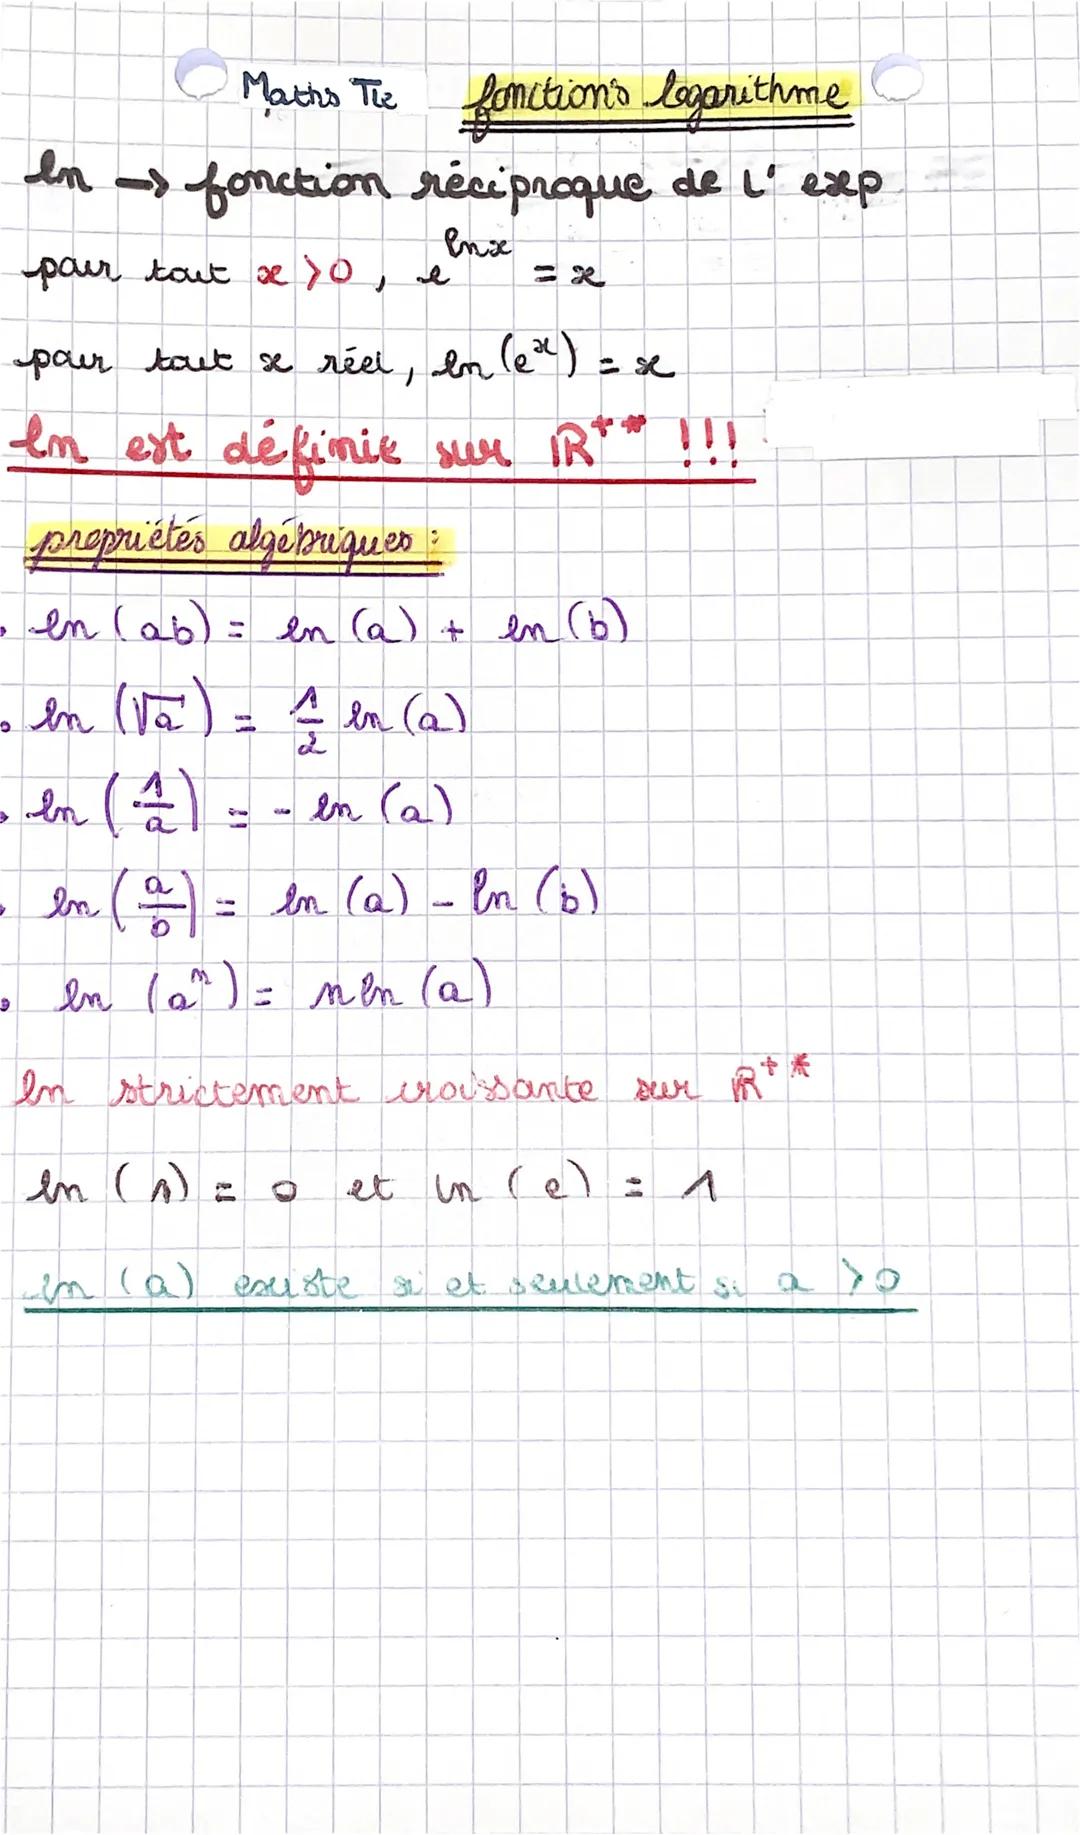 Maths Tle fonctions logarithme
ln → fonction réciproque de l' exp
pour tout x > 0, e^{ln x} = x
pour tout x réel, ln (e^x) = x
ln est définie sur ℝ^{+*} !!!
propriétés algébriques :
• ln (ab) = ln (a) + ln (b)
• ln (√a) = 1/2 ln (a)
• ln (1/a) = - ln (a)
• ln (a/b) = ln (a) - ln (b)
• ln (a^n) = n ln (a)
ln strictement croissante sur ℝ^{+*}
ln (1) = 0 et ln (e) = 1
ln (a) existe si et seulement si a > 0